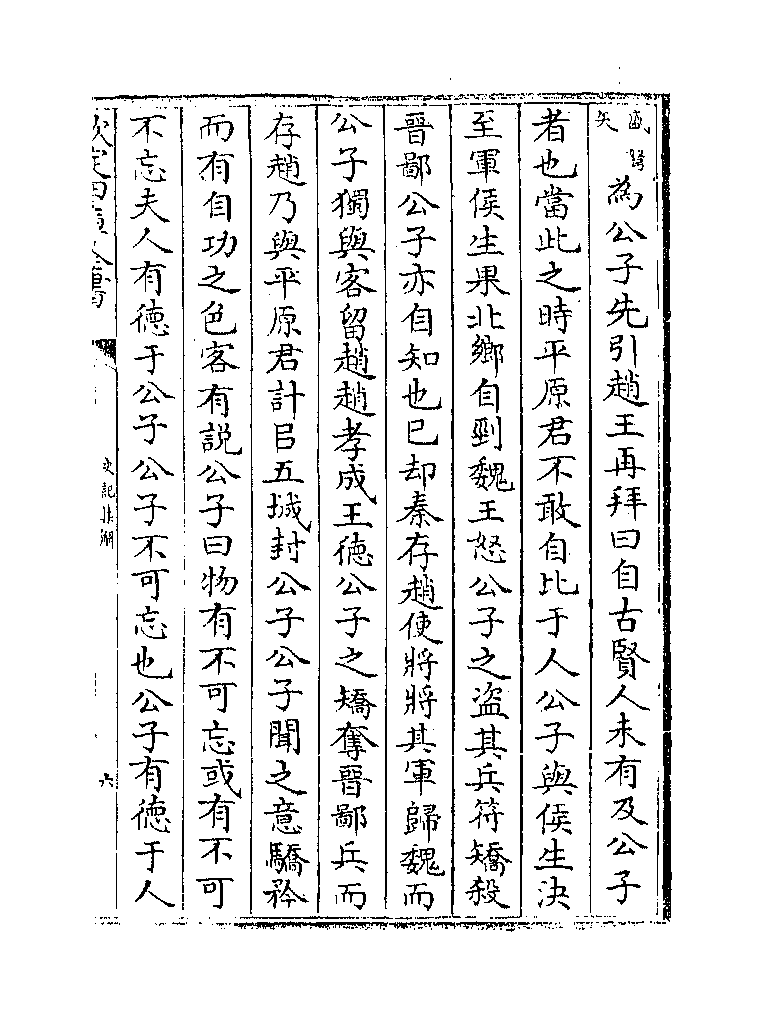 盛弩矢為公子先引趙王再拜曰自古賢人未有及公子
者也當此之時平原君不敢自比于人公子與侯生决
至軍侯生果北鄉自剄魏王怒公子之盗其兵符矯殺
晉鄙公子亦自知也已却秦存趙使將將其軍歸魏而
公子獨與客留趙趙孝成王徳公子之矯奪晉鄙兵而
存趙乃與平原君計㠯五城封公子公子聞之意驕矜
而有自功之色客有説公子曰物有不可忘或有不可
不忘夫人有徳于公子公子不可忘也公子有徳于人
欽定四庫全書
史記
六